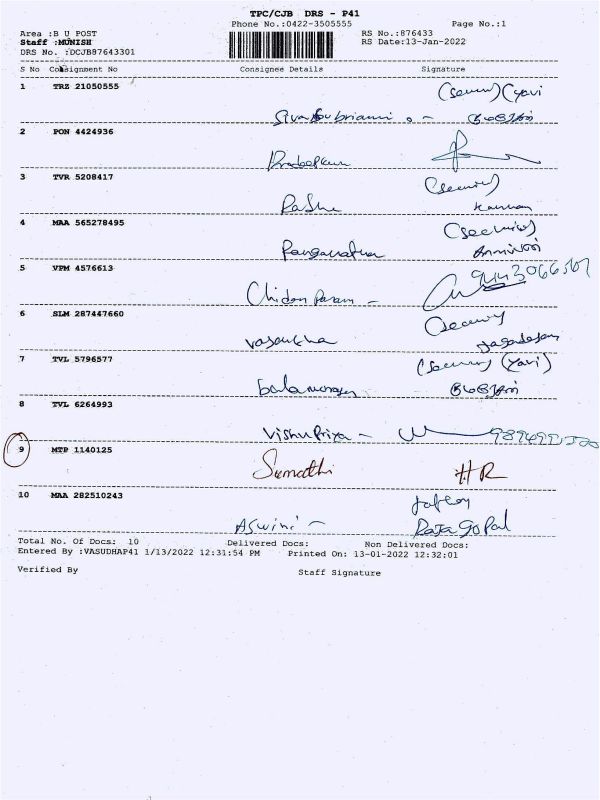 TPC/CJB DRS - P41
Phone No.:0422-3505555 Page No.:1
Area :B U POST RS No.:876433
Staff :MUNISH RS Date:13-Jan-2022
DRS No. :DCJB87643301
S No Consignment No Consignee Details Signature
1 TRZ 21050555 (Security) (yavi
2 PON 4424936
3 TVR 5208417 (Security)
Kannan
4 MAA 565278495 (Security)
Ranganathan
5 VPM 4576613
Chidamparam -
6 SLM 287447660 (Security
Vasantha
7 TVL 5796577 (Security (yavi)
balamurugan
8 TVL 6264993
Vishnu Priya -
9 MTP 1140125
Sumathi HR
10 MAA 282510243
Aswini - RajaGopal
Total No. Of Docs: 10 Delivered Docs: Non Delivered Docs:
Entered By :VASUDHAP41 1/13/2022 12:31:54 PM Printed On: 13-01-2022 12:32:01
Verified By Staff Signature